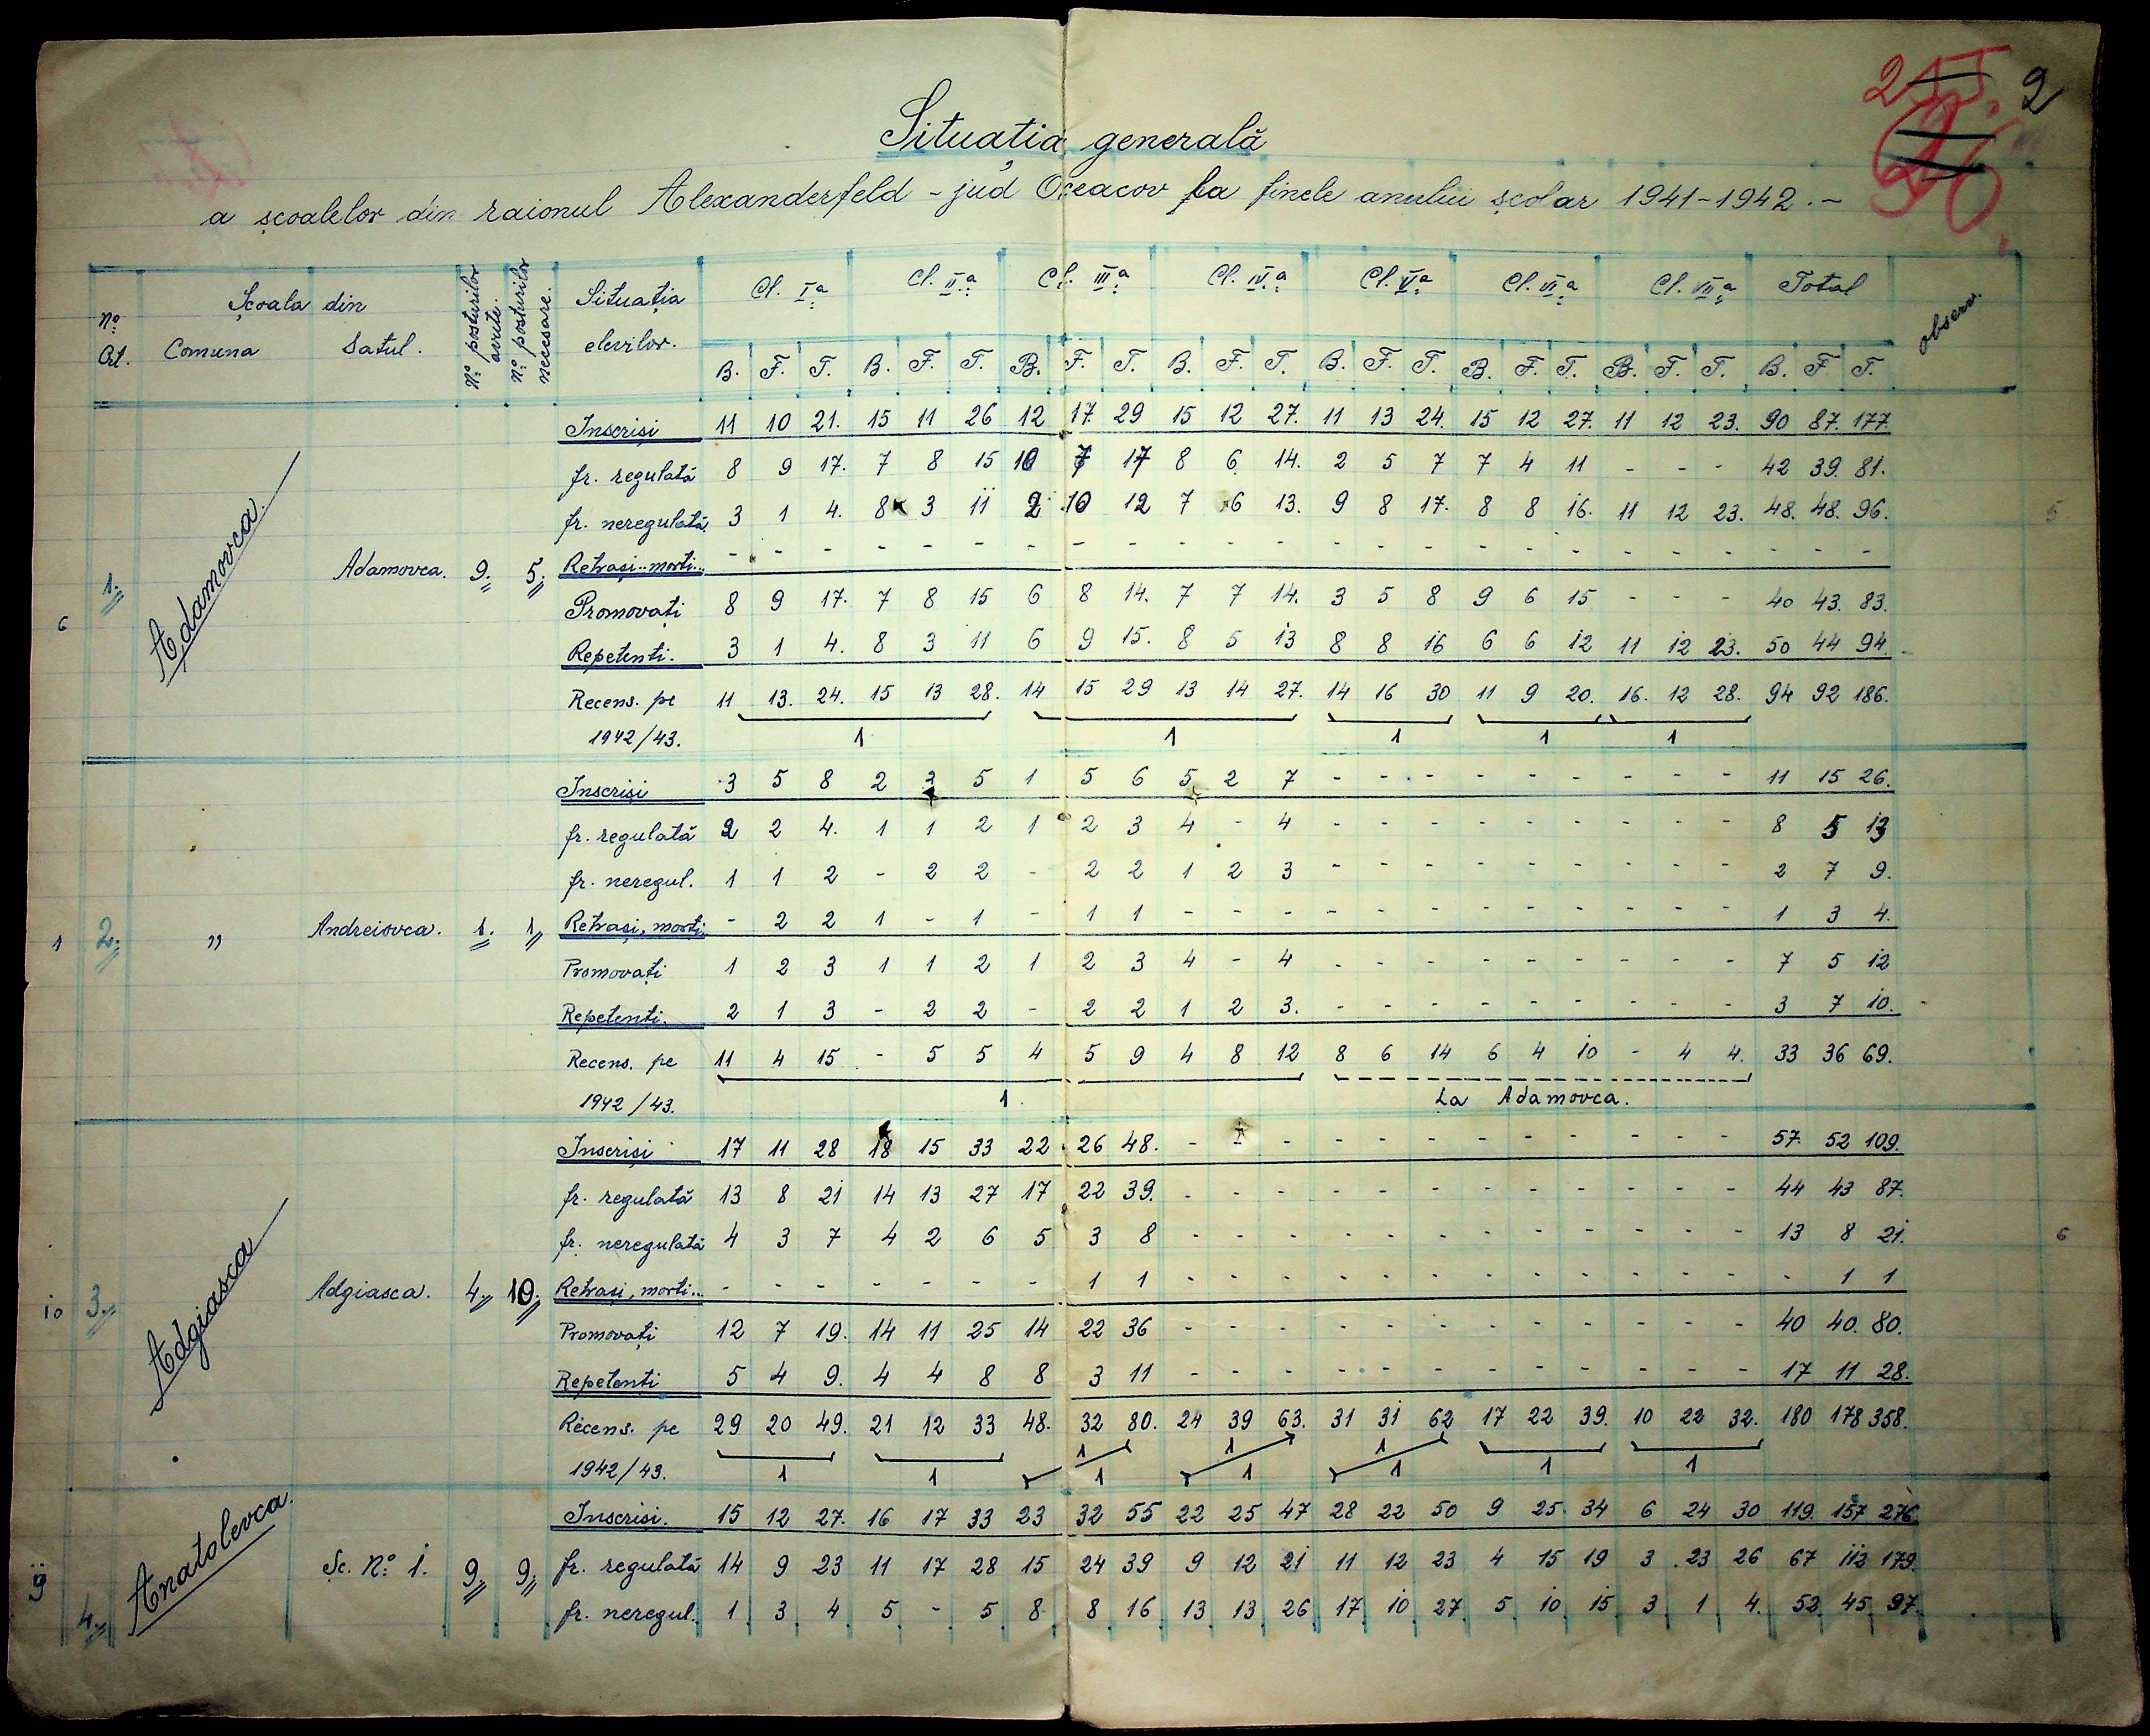 2
Situația generală
a școalelor din raionul Alexanderfeld - jud Oceacov la finele anului școlar 1941-1942.-
Nº Crt. Școala din Comuna Satul. Nº posturilor avute. Nº posturilor necesare. Situația elevilor. Cl. Iª Cl. IIª Cl. IIIª Cl. IVª Cl. Vª Cl. VIª Cl. VIIª Total observ.
B. F. T. B. F. T. B. F. T. B. F. T. B. F. T. B. F. T. B. F. T. B. F T.
Inscriși 11 10 21. 15 11 26 12 17. 29 15 12 27. 11 13 24. 15 12 27. 11 12 23. 90 87. 177.
fr. regulată 8 9 17. 7 8 15 10 7 17 8 6. 14. 2 5 7 7 4 11 - - - 42 39. 81.
fr. neregulată 3 1 4. 8 3 11 2 10 12 7 6 13. 9 8 17. 8 8 16. 11 12 23. 48. 48. 96. 5
6 1. Adamovca. Adamovca. 9. 5. Retrași..morti... - - - - - - - - - - - - - - - - - - - - - - - -
Promovați 8 9 17. 7 8 15 6 8 14. 7 7 14. 3 5 8 9 6 15 - - - 40 43. 83.
Repetenti. 3 1 4. 8 3 11 6 9 15. 8 5 13 8 8 16 6 6 12 11 12 23. 50 44 94.
Recens. pe 11 13. 24. 15 13 28. 14 15 29 13 14 27. 14 16 30 11 9 20. 16. 12 28. 94 92 186.
1942/43. 1 1 1 1 1
Inscriși 3 5 8 2 3 5 1 5 6 5 2 7 - - - - - - - - - 11 15 26.
fr. regulată 2 2 4. 1 1 2 1 2 3 4 - 4 - - - - - - - - - 8 5 13
fr. neregul. 1 1 2 - 2 2 - 2 2 1 2 3 - - - - - - - - - 2 7 9.
1 2. " Andreiovca. 1. 1 Retrași, morți. - 2 2 1 - 1 - 1 1 - - - - - - - - - - - - 1 3 4.
Promovați 1 2 3 1 1 2 1 2 3 4 - 4 - - - - - - - - - 7 5 12
Repetenti. 2 1 3 - 2 2 - 2 2 1 2 3. - - - - - - - - - 3 7 10.
Recens. pe 11 4 15 - 5 5 4 5 9 4 8 12 8 6 14 6 4 10 - 4 4. 33 36 69.
1942/43. 1. La Adamovca.
Inscriși 17 11 28 18 15 33 22 26 48. - - - - - - - - - - - - 57. 52 109.
fr. regulată 13 8 21 14 13 27 17 22 39. - - - - - - - - - - - - 44 43 87.
fr. neregulată 4 3 7 4 2 6 5 3 8 - - - - - - - - - - - - 13 8 21. 6
10 3. Adgiasca Adgiasca. 4. 10. Retrași, morti... - - - - - - - 1 1 - - - - - - - - - - - - - 1 1
Promovați 12 7 19. 14 11 25 14 22 36 - - - - - - - - - - - - 40 40. 80.
Repetenți 5 4 9. 4 4 8 8 3 11 - - - - - - - - - - - - 17 11 28.
Recens. pe 29 20 49. 21 12 33 48. 32 80. 24 39 63. 31 31 62 17 22 39. 10 22 32. 180 178 358.
1942/43. 1 1 1 1 1 1 1 1 1 1
Inscrisi. 15 12 27. 16 17 33 23 32 55 22 25 47 28 22 50 9 25 34 6 24 30 119. 157 276.
9 4. Anatolevca. Șc. Nº 1. 9. 9. fr. regulată 14 9 23 11 17 28 15 24 39 9 12 21 11 12 23 4 15 19 3 23 26 67 112 179.
fr. neregul. 1 3 4 5 - 5 8 8 16 13 13 26 17 10 27 5 10 15 3 1 4. 52 45 97.